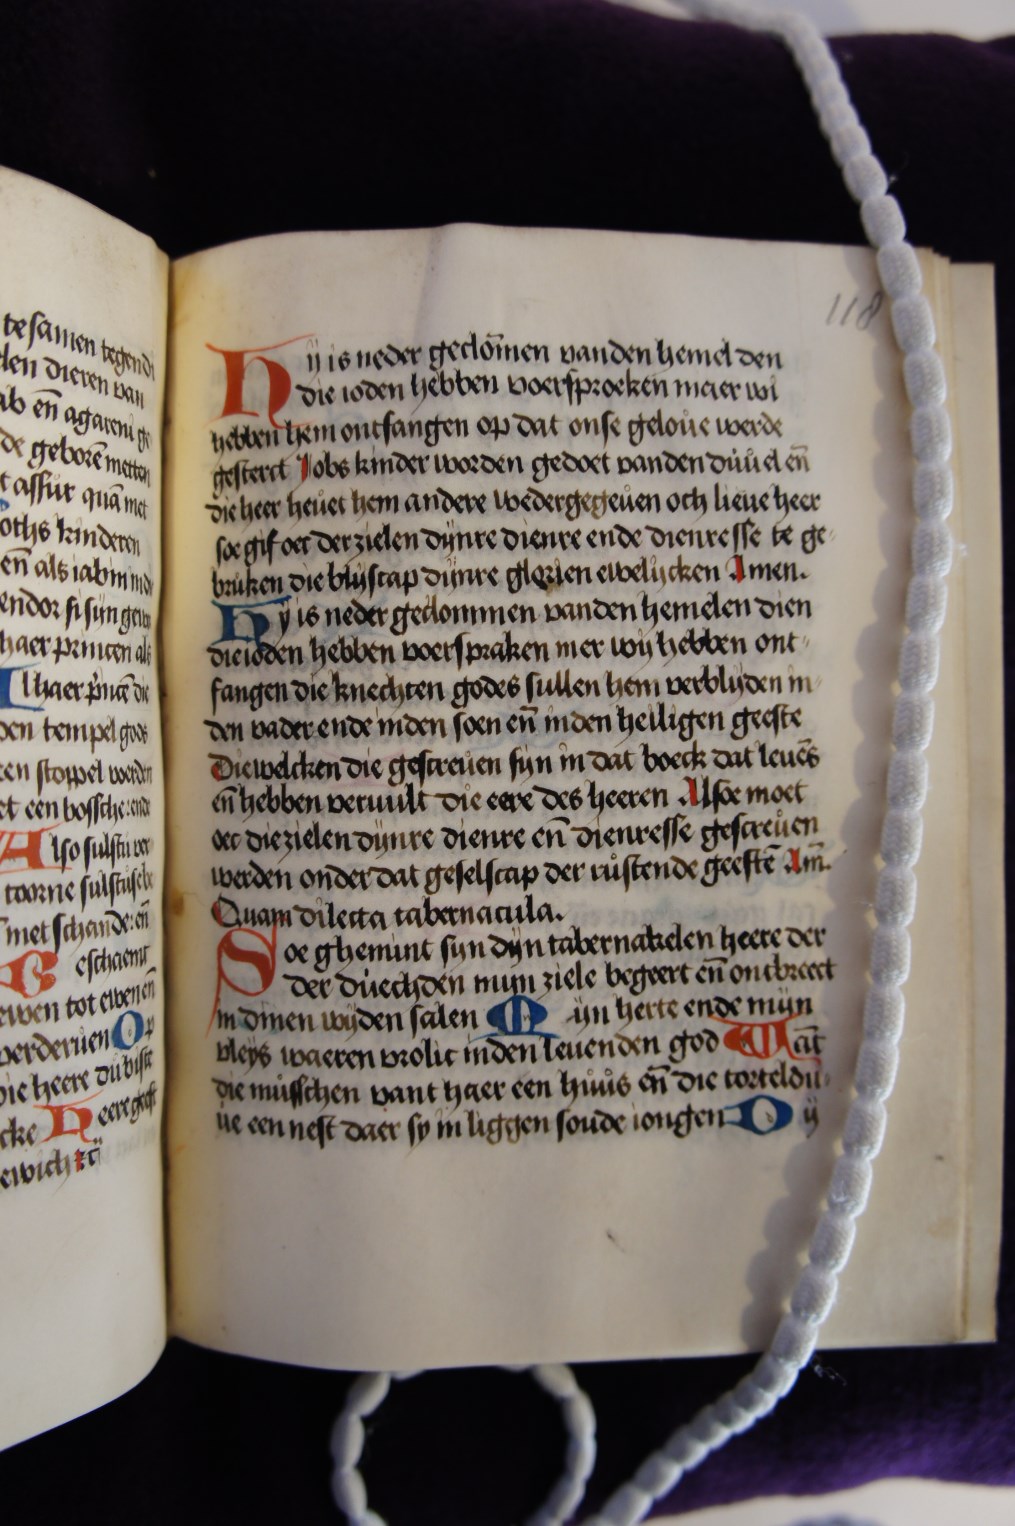 te samen tegen di
len dieren van
ab en̄ agareni ge
de geborē metten
t assur quā met
oths kinderen
en̄ als iabin
endor si sijn
haer princen als
l haer prince die
den tempel gods
een stoppel werden
et een bossche: ende
Also sulstu ver
toorne sulstuse be
met schande: en̄
Beschaemt
ewen tot ewen en̄
verderuen Op
die heere du biste
cke Heere geeft
ewich
118
Hij is neder geclōmen vanden hemel den
die ioden hebben voersproeken maer wi
hebben hem ontfangen op dat onse geloue werde
gesterct Jobs kinder worden gedoet vanden duuel en̄
die heer heuet hem andere wedergegeuen och lieue heer
soe gif oec der zielen dijnre dienre ende dienresse te ge
bruken die blijscap dijnre glorien ewelijcken Amen.
Hy is neder geclommen vanden hemelen dien
die ioden hebben voerspraken mer wij hebben ont
fangen die knechten godes sullen hem verblijden in
den vader ende inden soen en̄ inden heiligen geeste
Die welcken die gescreuen sijn in dat boeck dat leuēs
en̄ hebben veruult die eere des heeren Alsoe moet
oec die zielen dijnre dienre en̄ dienresse gescreuen
werden onder dat geselscap der rustende geestē Am̄.
Quam dilecta tabernacula.
Soe ghemint sijn dijn tabernakelen heere der
der duechden mijn ziele begeert en̄ ontbreect
in dinen wijden salen Mijn herte ende mijn
vleys waeren vrolic inden leuenden god Wāt
die musschen vant haer een huus en̄ die torteldu
ue een nest daer sy in liggen soude iongen Dij